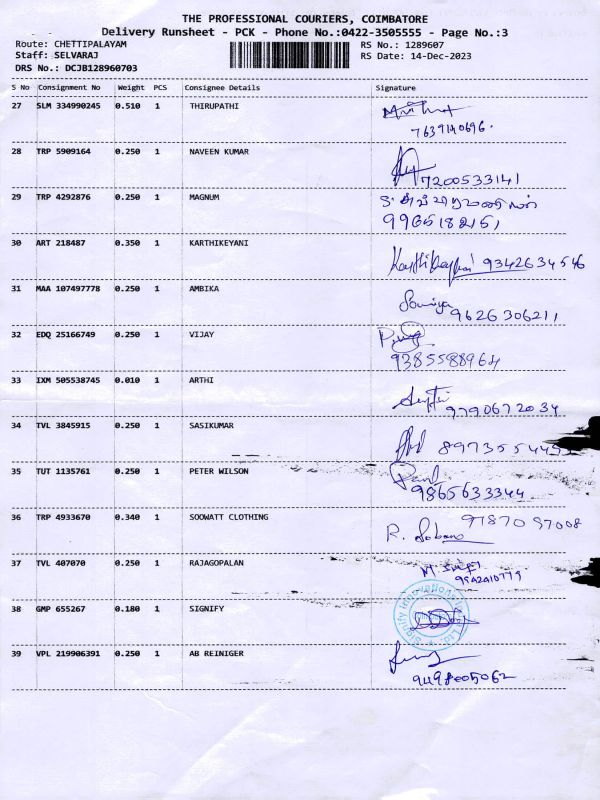 THE PROFESSIONAL COURIERS, COIMBATORE
Delivery Runsheet - PCK - Phone No.:0422-3505555 - Page No.:3
Route: CHETTIPALAYAM RS No.: 1289607
Staff: SELVARAJ RS Date: 14-Dec-2023
DRS No.: DCJB128960703
S No Consignment No Weight PCS Consignee Details Signature
27 SLM 334990245 0.510 1 THIRUPATHI
7639140696.
28 TRP 5909164 0.250 1 NAVEEN KUMAR
7200533141
29 TRP 4292876 0.250 1 MAGNUM
30 ART 218487 0.350 1 KARTHIKEYANI
9342634546
31 MAA 107497778 0.250 1 AMBIKA
Soniya
9626306211
32 EDQ 25166749 0.250 1 VIJAY
9385588964
33 IXM 505538745 0.010 1 ARTHI
9790672034
34 TVL 3845915 0.250 1 SASIKUMAR
35 TUT 1135761 0.250 1 PETER WILSON
9865633344
36 TRP 4933670 0.340 1 SOOWATT CLOTHING
37 TVL 407070 0.250 1 RAJAGOPALAN
38 GMP 655267 0.180 1 SIGNIFY
39 VPL 219906391 0.250 1 AB REINIGER
9498005062